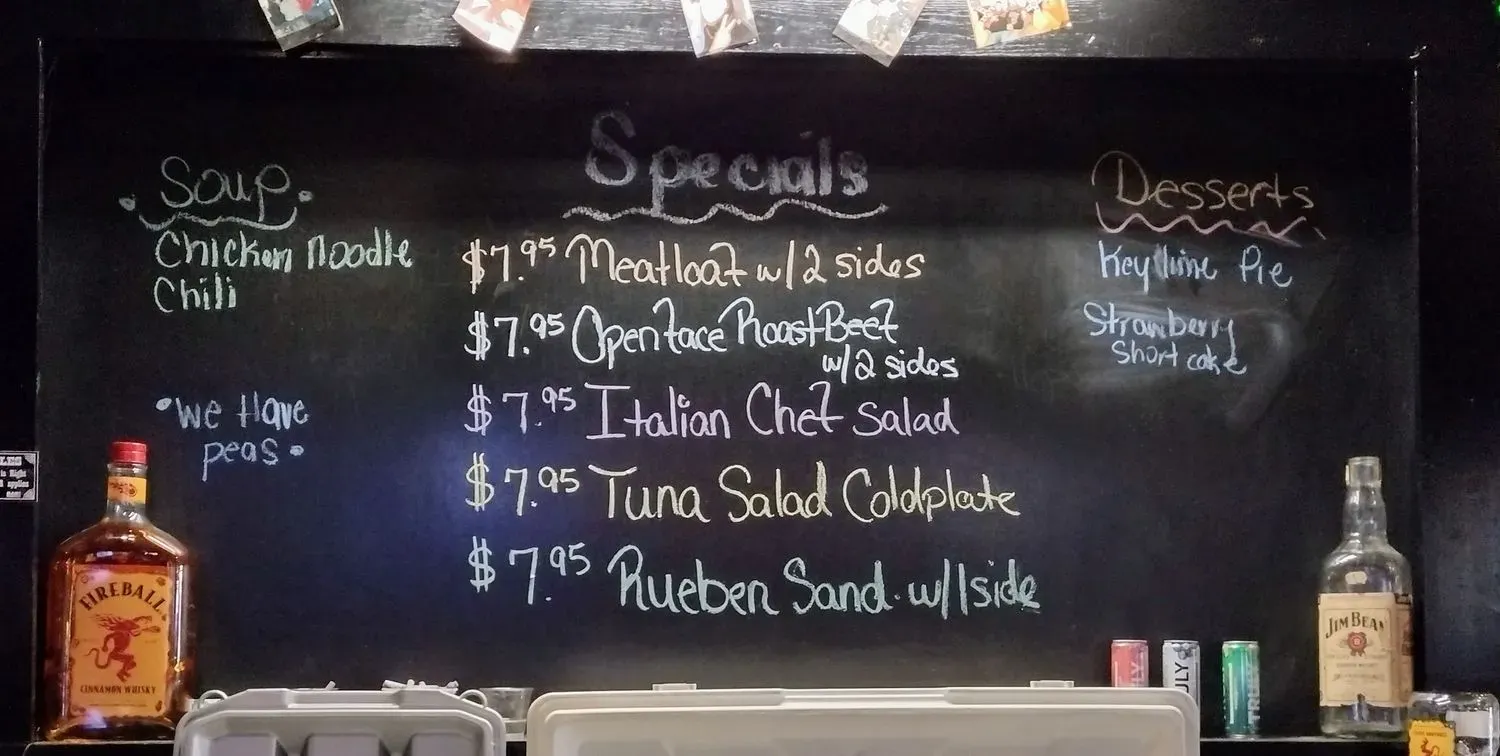 Soup
Chicken Noodle
Chili
• We Have
peas •
Specials
$7.95 Meatloaf w/2 sides
$7.95 Openface Roast Beef
w/2 sides
$7.95 Italian Chef Salad
$7.95 Tuna Salad Coldplate
$7.95 Rueben Sand. w/1side
Desserts
Key lime Pie
Strawberry
Short cake
FIREBALL
CINNAMON WHISKY
JIM BEAM
TRULY